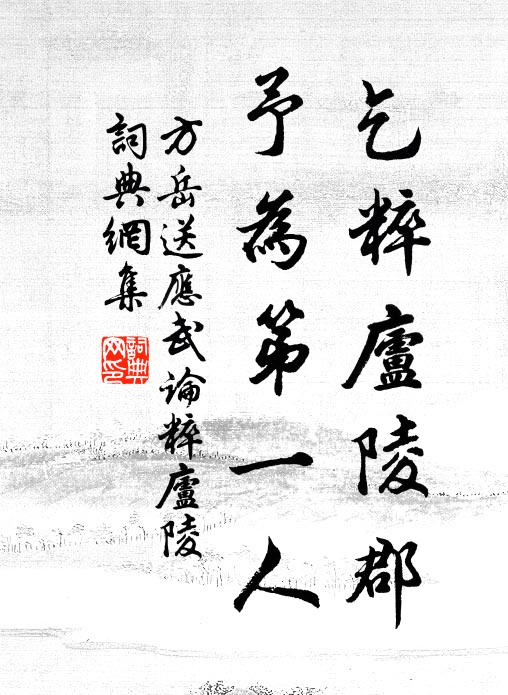 乞粹廬陵郡
予為第一人
方岳送應武論粹廬陵
詞典網集
詞典網印